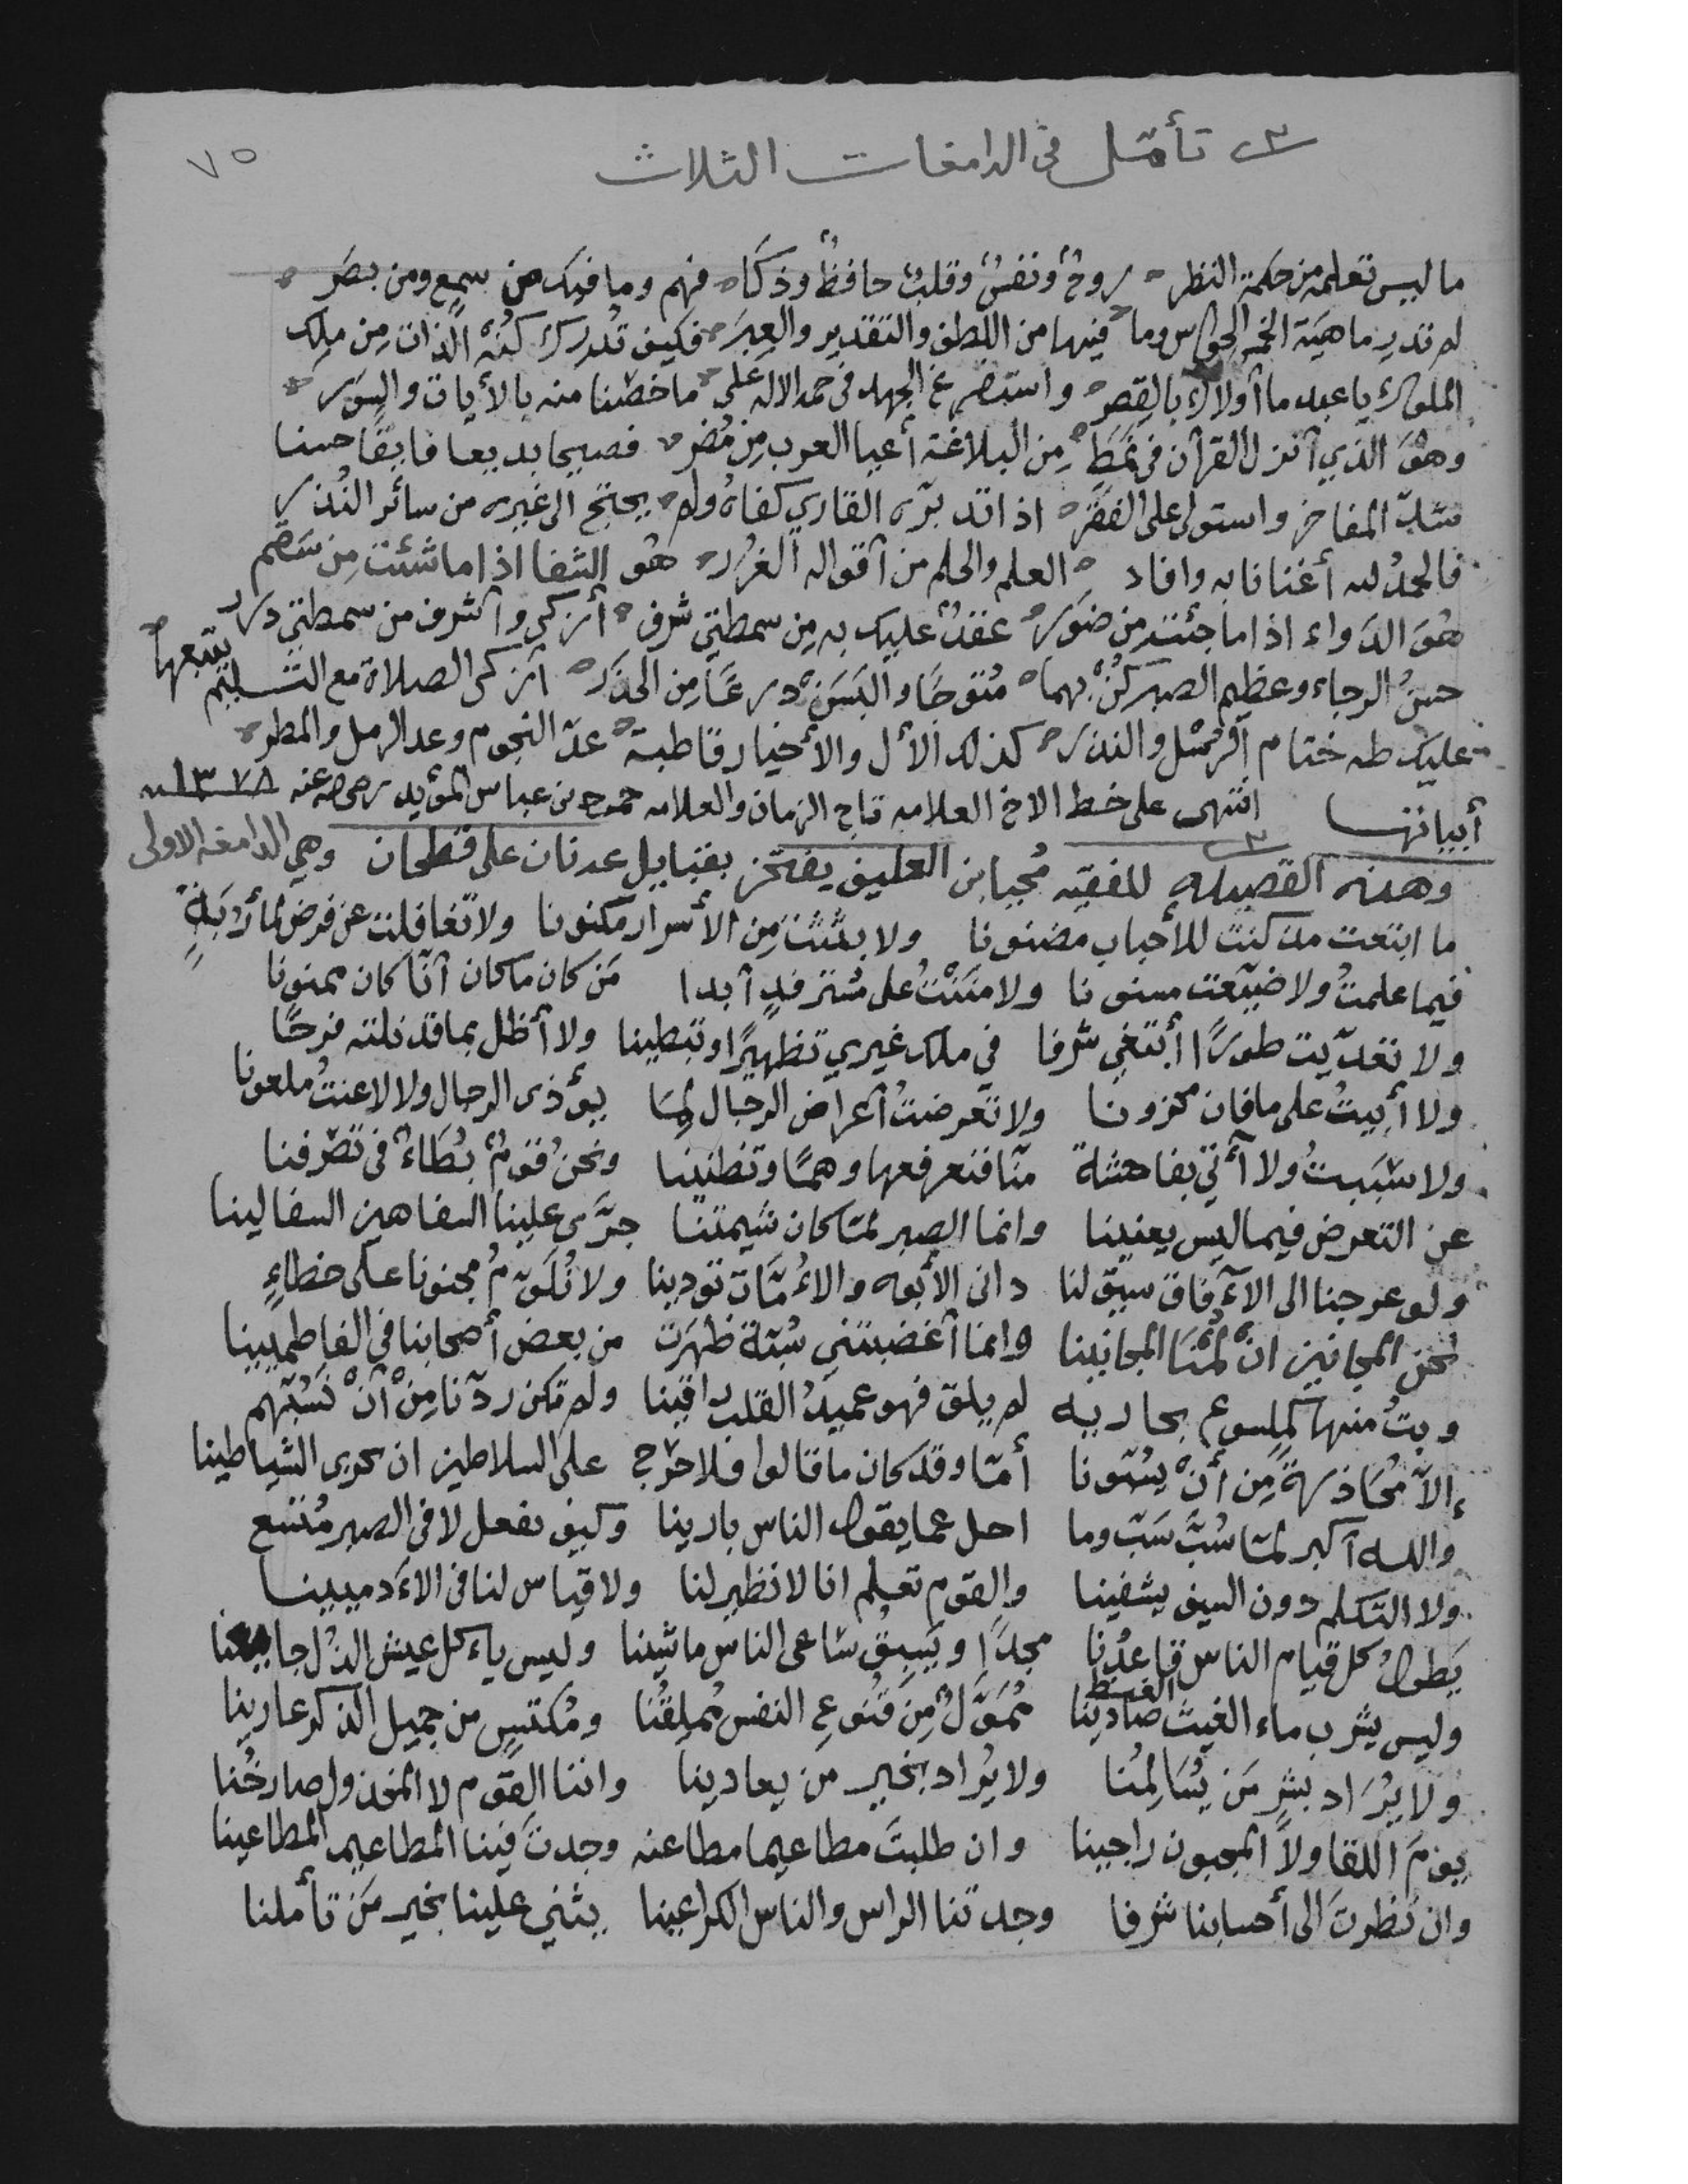 ٧٥
تأمّل في الدامغات الثلاث
ما ليس تعلمه من حكمة النظر روحٌ ونفسٌ وقلبٌ حافظٌ وذكاه فهم وما فيك من سمع ومن بصَر
لم تدرِ ماهيَة الخمر الحواس وما فيها من اللطف والتقدير والعِبَر فكيف تُدرك كُنْهَ الذات مِن ملِك
الملوك يا عبد ما أولاك بالقصر واستفرغ الجهد في حمد الاله على ما خصّنا منه بالأيات والسوَر
وهوَ الذي أنزل القرآن في نمَطٍ مِن البلاغة أعيا العرب مِن مُضر فصيحا بديعا فايقًا حسنا
سَلبّ المفاخر واستولى على الفقر اذا تدبّره القاري كفاهُ ولم يحتج الى غيره من سائر النُذر
فالحمدُ لله أغنانا به وافاد العلم والحلم من أقواله الغُرر هُو الشفا اذا ما شئت مِن سَقم
هوَ الدَواء اذا ما جئته من ضوَر عقدٌ عليك به مِن سمطتي شرف أزكى وأشرف من سمطتي درر
حسنُ الرجاء وعظيم الصبر كُنْ بهما مُتوحّا والبَسَنْ درعًا من الحذَر أزكى الصلاة مع التسليم يتبعها
عليك طه ختام الرُسْل والنذر كذلك الأل والأخيار قاطبة عدّ النجوم وعد الرمل والمطر
أبياتها انتهى على خط الاخ العلامه تاج الزمان والعلامه حمود بن عباس المؤيد رضي الله عنه ١٣٧٨
وهذه القصيده للفقيه مُحيا بن العليف يفتخر بقبايل عدنان على قحطان وهي الدامغه الاولى
ما ابتعت مذ كنت للأحباب مضنونا ولا بثثت مِن الأسرار مكنونا ولا تغافلت عن فرض لمأرَبةٍ
فيما علمتُ ولا ضيّعت مسنونا ولا مَننْتُ على مُسترفدٍ أبدا مَن كان ما كان أنّا كان ممنونا
ولا تعدّيت طورًا أبتغي شرفا في ملك غيري تظهيرًا وتبطينا ولا أظل بما قد نلته فرحًا
ولا أبيتُ على ما فان محزونا ولا تعرضتُ أعراض الرجال لِمَا يؤذى الرجال ولا لاعنتُ ملعونا
ولا سَبَبتُ ولا أُتيَ بفاحشة منّا فنعرفها وهمًا وتظنينا ونحنُ قومٌ بُطَاءٌ في تصرفنا
عن التعرض فيما ليس يعنينا وانما الصبر لمّا كان شيمتنا جرّى علينا السفاهين السفالينا
ولو عرجنا الى الآفاق سيق لنا داني الأبوه والأمّات تودينا ولا نُلَوّمُ مجنونا على خطاءٍ
نحن المجانين انْ لُمْنَا المجانينا وانما أغضبتني سُبّة ظهرَت من بعض أصحابنا في الفاطميينا
وبتُ منها كملسوع بحاريه لم يلق فهو عميدُ القلب راقينا ولم تكن ردّنا مِنْ أنْ نَسُبّهم
إلاّ مُحَاذرةً مِن أنْ يسُبّونا أمّا وقد كان ما قالوا فلا حرَج على السلاطين ان تحوي الشياطينا
والله أكبر لمّا سُبَّ سَبّ وما احل عما يقول الناس بارينا وكيف نفعل لا في الصبر مُتّسع
ولا التكلم دون السيف يشفينا والقوم تعلم انا لا نظير لنا ولا قياس لنا في الآدميينا
يَطولُ كل قيام الناس قاعدُنا مجدًا ويَسبقُ ساعي الناس ماشينا وليس يأكل عيش الذل جايعنا
وليس يشرب ماء الغيث صادينا مُمَوّلٌ مِن قنوع النفس مُملِقُنا ومُكتسٍ من جميل الذكر عارينا
ولا يُرَاد بشرٍ مَن يُسَالِمُنا ولا يُراد بخير من يعادينا واننا القوم لا المخذول صارخُنا
يومَ اللقا ولا المجبون راجينا وان طلبتَ مطاعيما مطاعنه وجدت فينا المطاعيم المطاعينا
وان نظرتَ الى أحسابنا شرفا وجدتنا الراس والناس الكراعينا يثني علينا بخير مَن تأملنا